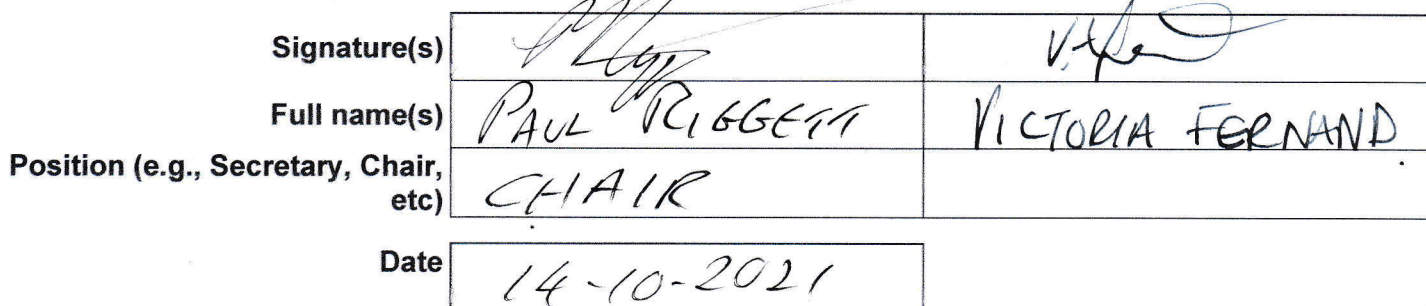 Signature(s)
Full name(s) PAUL RIGGETT VICTORIA FERNAND
Position (e.g., Secretary, Chair,
etc) CHAIR
Date 14-10-2021